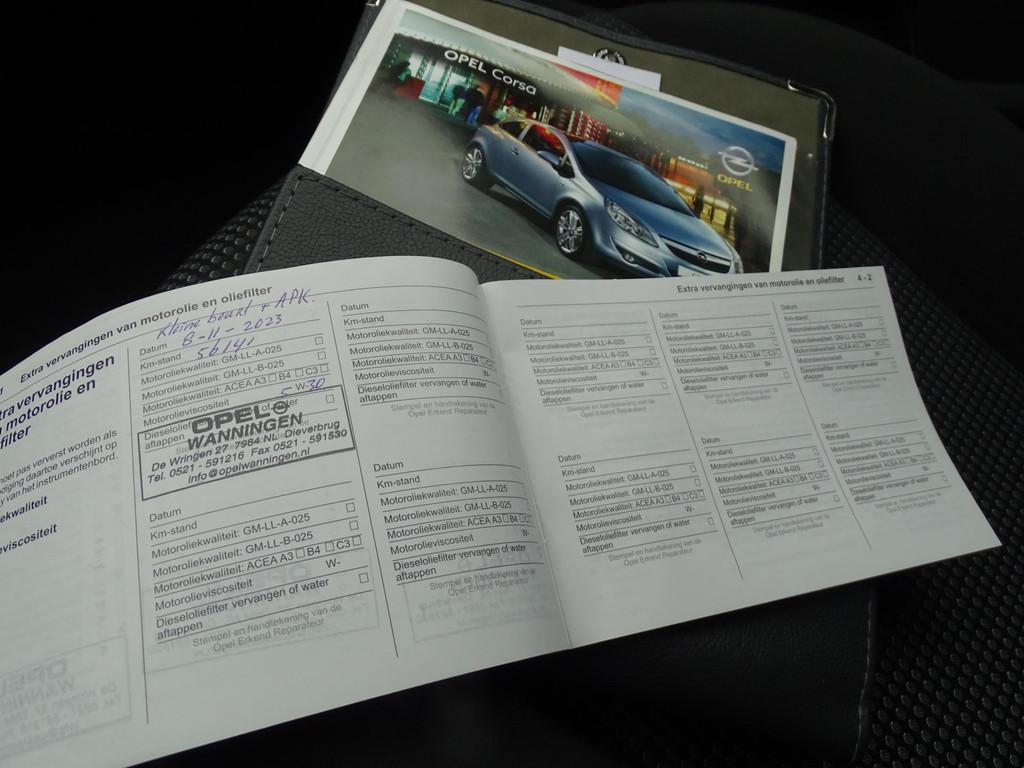 OPEL Corsa
OPEL
Extra vervangingen van motorolie en oliefilter
vervangingen
motorolie en
filter
pas ververst worden als
daartoe verschijnt op
van het instrumentenbord.
Kleine beurt + APK.
Datum 8-11-2023
Km-stand 56141
Motoroliekwaliteit: GM-LL-A-025
Motoroliekwaliteit: GM-LL-B-025
Motoroliekwaliteit: ACEA A3 B4 C3
Motorolieviscositeit 5 W-30
Dieseloliefilter of
aftappen
OPEL
WANNINGEN
De Wringen 27 7984 NL Dieverbrug
Tel. 0521 - 591216 Fax 0521 - 591530
info@opelwanningen.nl
Datum
Km-stand
Motoroliekwaliteit: GM-LL-A-025
Motoroliekwaliteit: GM-LL-B-025
Motoroliekwaliteit: ACEA A3 B4 C3
Motorolieviscositeit W-
Dieseloliefilter vervangen of water
aftappen
Stempel en handtekening van de
Opel Erkend Reparateur
Datum
Km-stand
Motoroliekwaliteit: GM-LL-A-025
Motoroliekwaliteit: GM-LL-B-025
Motoroliekwaliteit: ACEA A3 B4 C3
Motorolieviscositeit W-
Dieseloliefilter vervangen of water
aftappen
Stempel en handtekening van de
Opel Erkend Reparateur
Datum
Km-stand
Motoroliekwaliteit: GM-LL-A-025
Motoroliekwaliteit: GM-LL-B-025
Motoroliekwaliteit: ACEA A3 B4 C3
Motorolieviscositeit W-
Dieseloliefilter vervangen of water
aftappen
Stempel en handtekening van de
Opel Erkend Reparateur
Extra vervangingen van motorolie en oliefilter 4 - 2
Datum
Km-stand
Motoroliekwaliteit: GM-LL-A-025
Motoroliekwaliteit: GM-LL-B-025
Motoroliekwaliteit: ACEA A3 B4 C3
Motorolieviscositeit W-
Dieseloliefilter vervangen of water
aftappen
Stempel en handtekening van de
Opel Erkend Reparateur
Datum
Km-stand
Motoroliekwaliteit: GM-LL-A-025
Motoroliekwaliteit: GM-LL-B-025
Motoroliekwaliteit: ACEA A3 B4 C3
Motorolieviscositeit W-
Dieseloliefilter vervangen of water
aftappen
Stempel en handtekening van de
Opel Erkend Reparateur
Datum
Km-stand
Motoroliekwaliteit: GM-LL-A-025
Motoroliekwaliteit: GM-LL-B-025
Motoroliekwaliteit: ACEA A3 B4 C3
Motorolieviscositeit W-
Dieseloliefilter vervangen of water
aftappen
Stempel en handtekening van de
Opel Erkend Reparateur
Datum
Km-stand
Motoroliekwaliteit: GM-LL-A-025
Motoroliekwaliteit: GM-LL-B-025
Motoroliekwaliteit: ACEA A3 B4 C3
Motorolieviscositeit W-
Dieseloliefilter vervangen of water
aftappen
Stempel en handtekening van de
Opel Erkend Reparateur
Datum
Km-stand
Motoroliekwaliteit: GM-LL-A-025
Motoroliekwaliteit: GM-LL-B-025
Motoroliekwaliteit: ACEA A3 B4 C3
Motorolieviscositeit W-
Dieseloliefilter vervangen of water
aftappen
Stempel en handtekening van de
Opel Erkend Reparateur
Datum
Km-stand
Motoroliekwaliteit: GM-LL-A-025
Motoroliekwaliteit: GM-LL-B-025
Motoroliekwaliteit: ACEA A3 B4 C3
Motorolieviscositeit W-
Dieseloliefilter vervangen of water
aftappen
Stempel en handtekening van de
Opel Erkend Reparateur